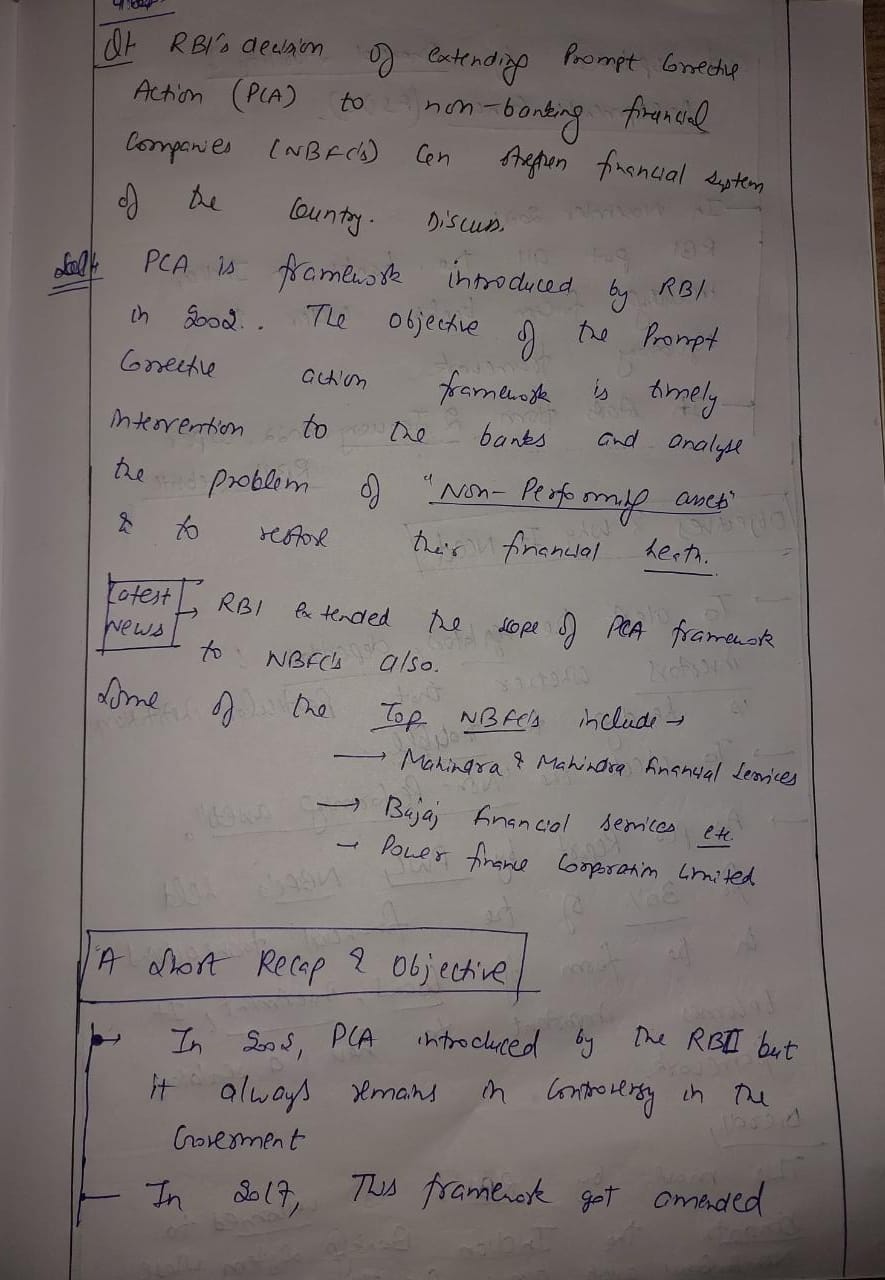 Q1 RBI's decision of extending Prompt Corrective
Action (PCA) to non-banking financial
Companies (NBFC's) Can financial system
of the Country. Discuss.
PCA is framework introduced by RBI
in 2002.. The objective of the Prompt
Corrective action framework is timely
intervention to the banks and analyse
the problem of "Non-Performing assets"
& to restore their financial heath.
Latest News → RBI extended the scope of PCA framework
to NBFC's also.
Some of the Top NBFC's include →
→ Mahindra & Mahindra financial Services
→ Bajaj financial services etc
→ Power finance Corporation Limited
"A Short Recap & Objective
→ In 2002, PCA introduced by the RBI but
it always remains in Controversy in the
Goverment
— In 2017, This framework got amended